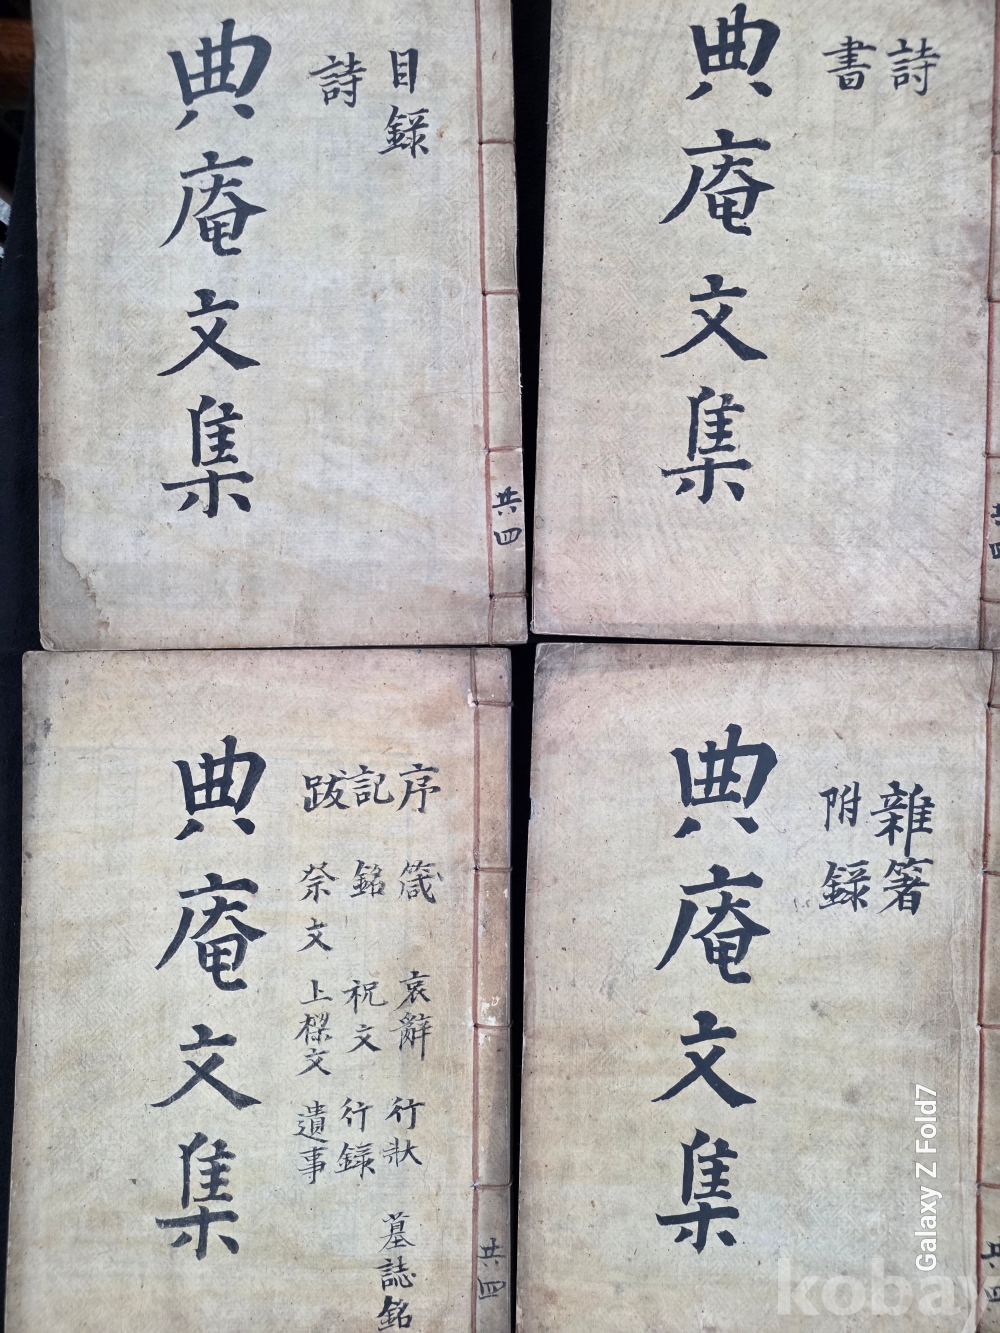 目錄
詩
典庵文集
共四
詩
書
典庵文集
共四
序 箴 哀辭 行狀 墓誌銘
記 銘 祝文 行錄
跋 祭文 上樑文 遺事
典庵文集
共四
雜著
附錄
典庵文集
共四
Galaxy Z Fold7
kobay